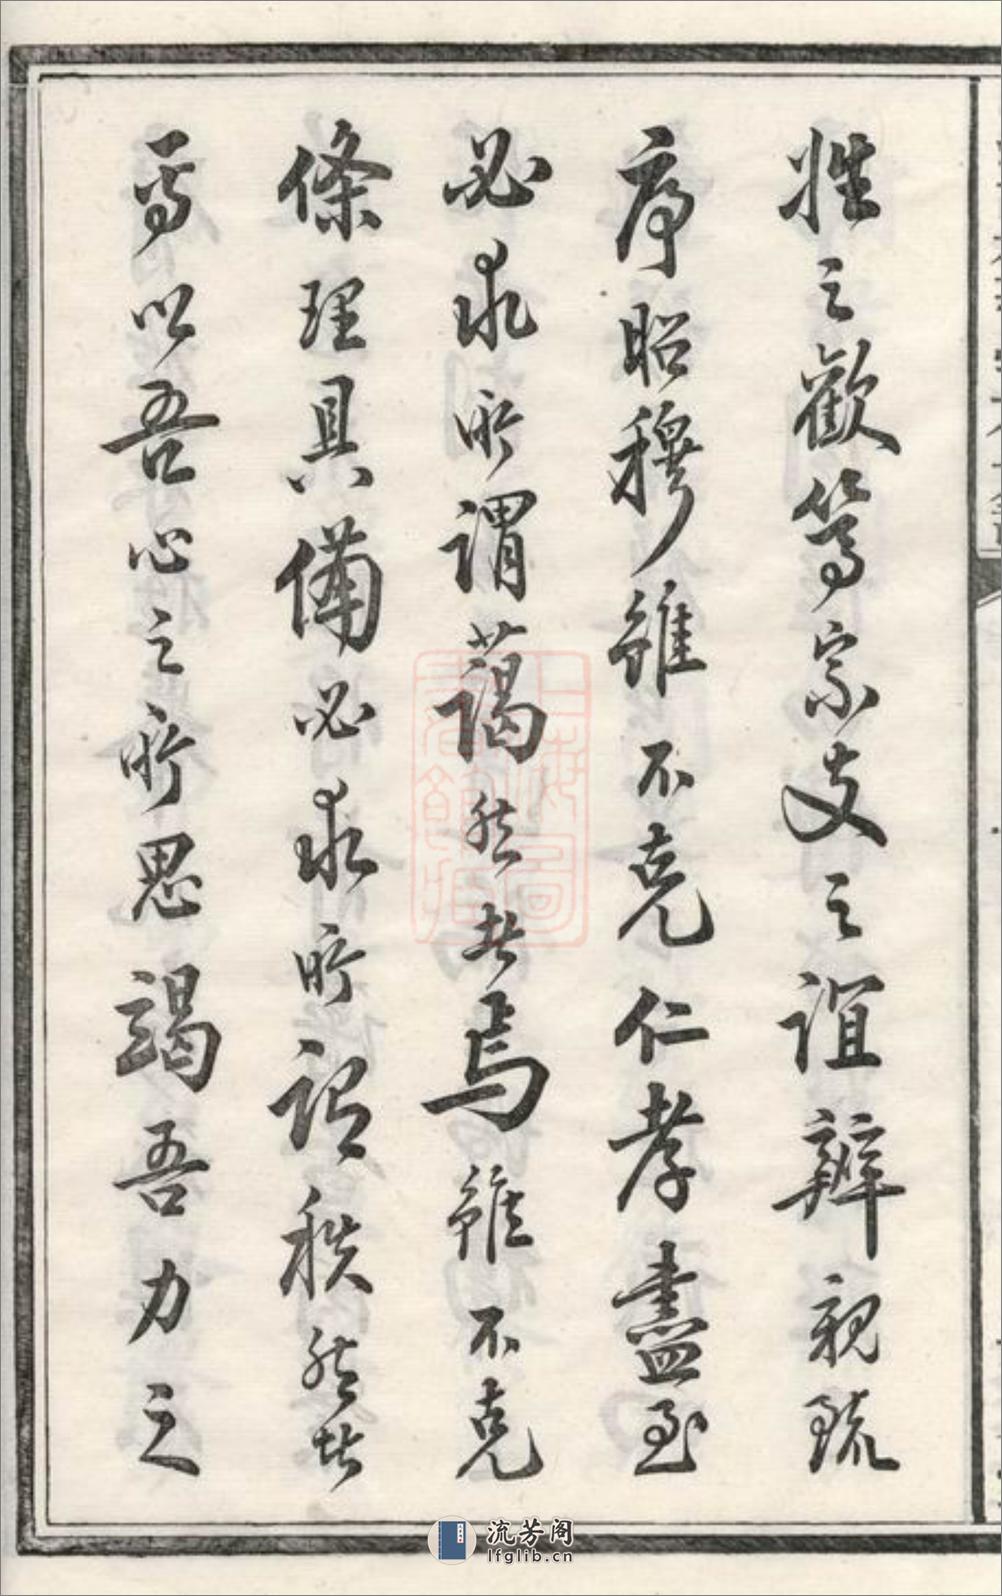 牲之歡篤宗支之誼辨親疏
序昭穆雖不克仁孝盡至
必求所謂藹然者焉雖不克
條理具備必求所謂秩然者
焉以吾心之所思竭吾力之
上海圖書館藏
流芳阁
lfglib.cn